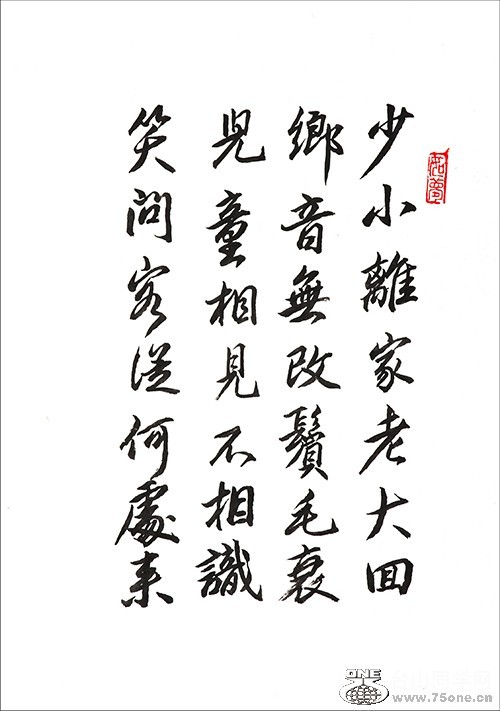 少小離家老大回
鄉音無改鬢毛衰
兒童相見不相識
笑問客從何處來
ONE
台山同学网
www.75one.net